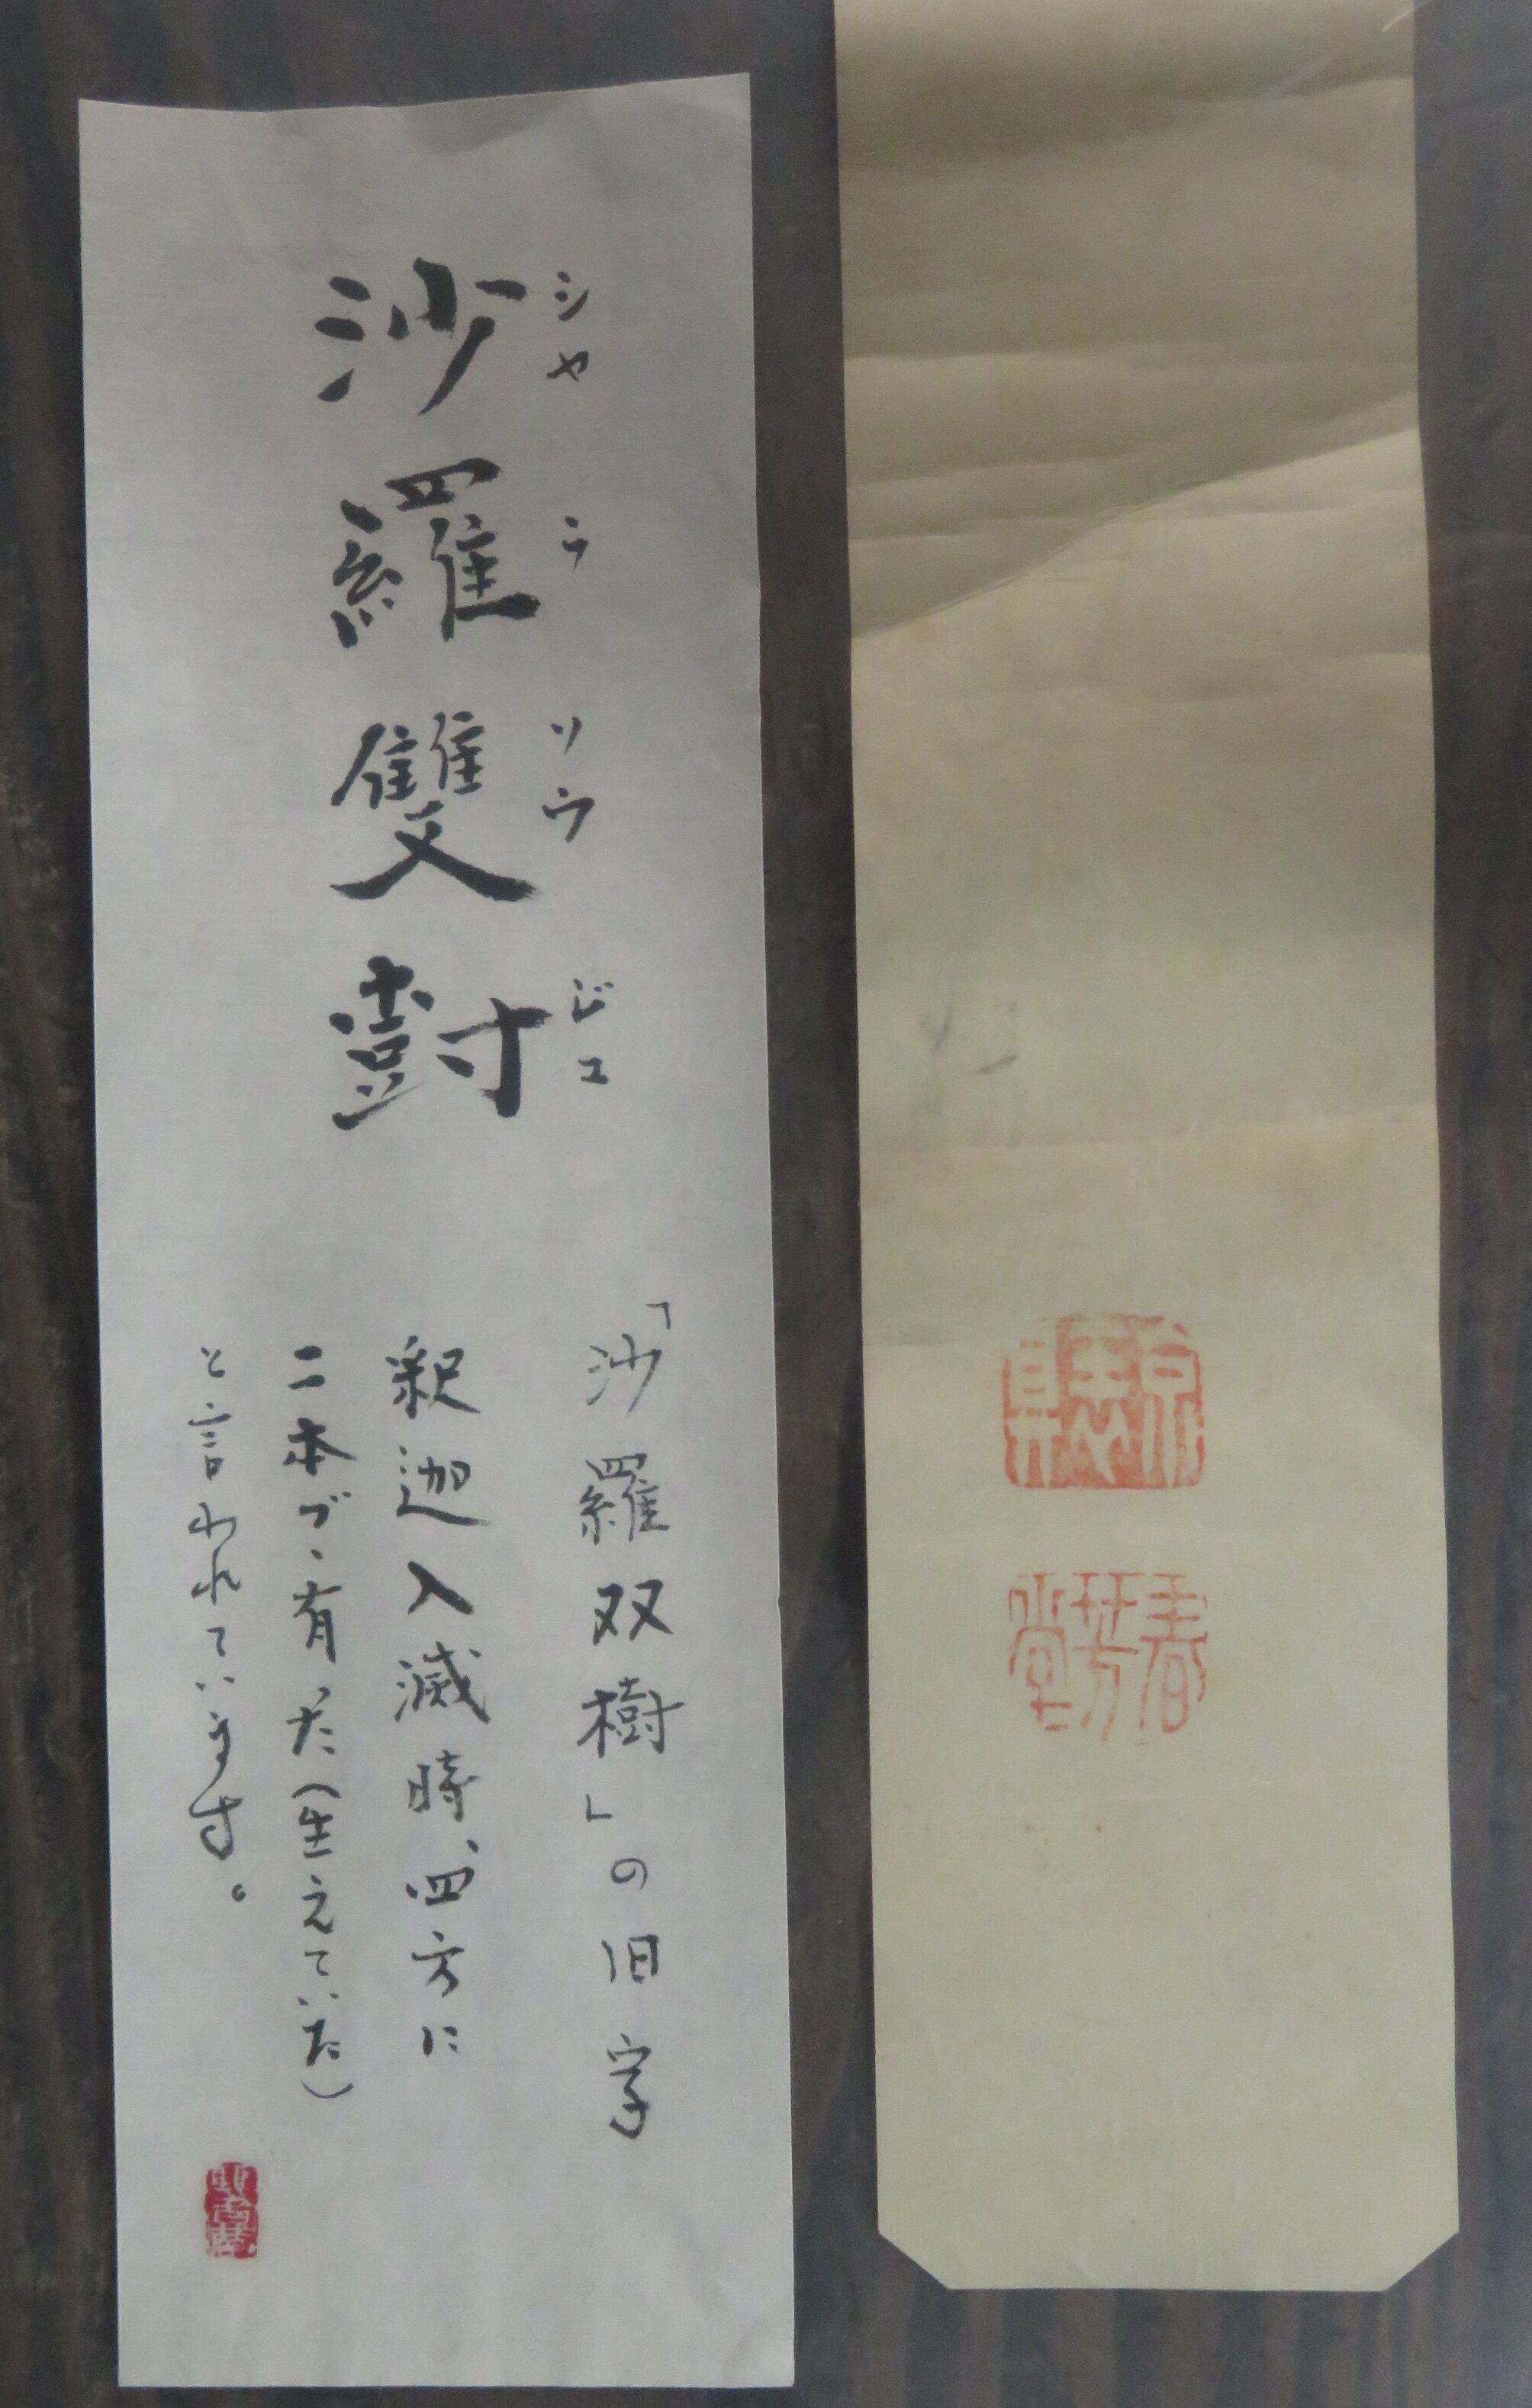 沙羅雙尌
シャラソウジュ
「沙羅双樹」の旧字
釈迦入滅時、四方に
二本づゝ有った(生えていた)
と言われています。